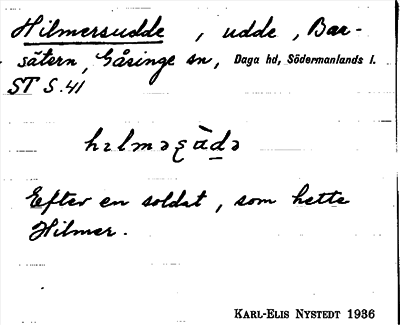 Hilmersudde , udde, Bar-
sätern, Gåsinge sn, Daga hd, Södermanlands l.
ST S. 41
Efter en soldat, som hette
Hilmer.
KARL-ELIS NYSTEDT 1936